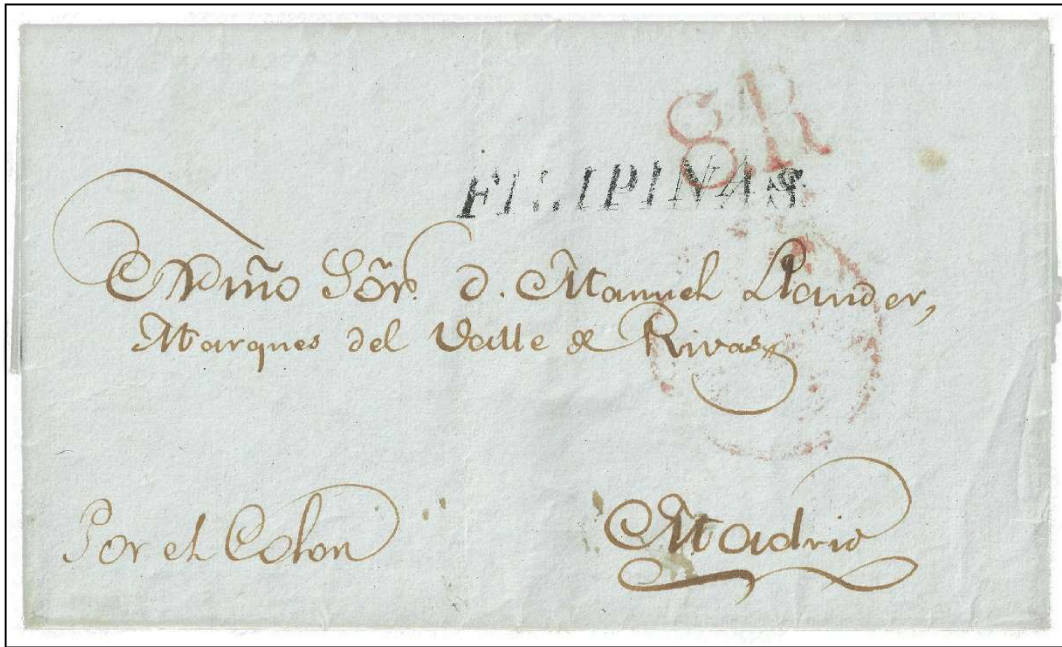 8R
FILIPINAS
Exmo Sõr. D. Manuel Llander,
Marques del Valle de Rivas
Por el Colon
Madrid